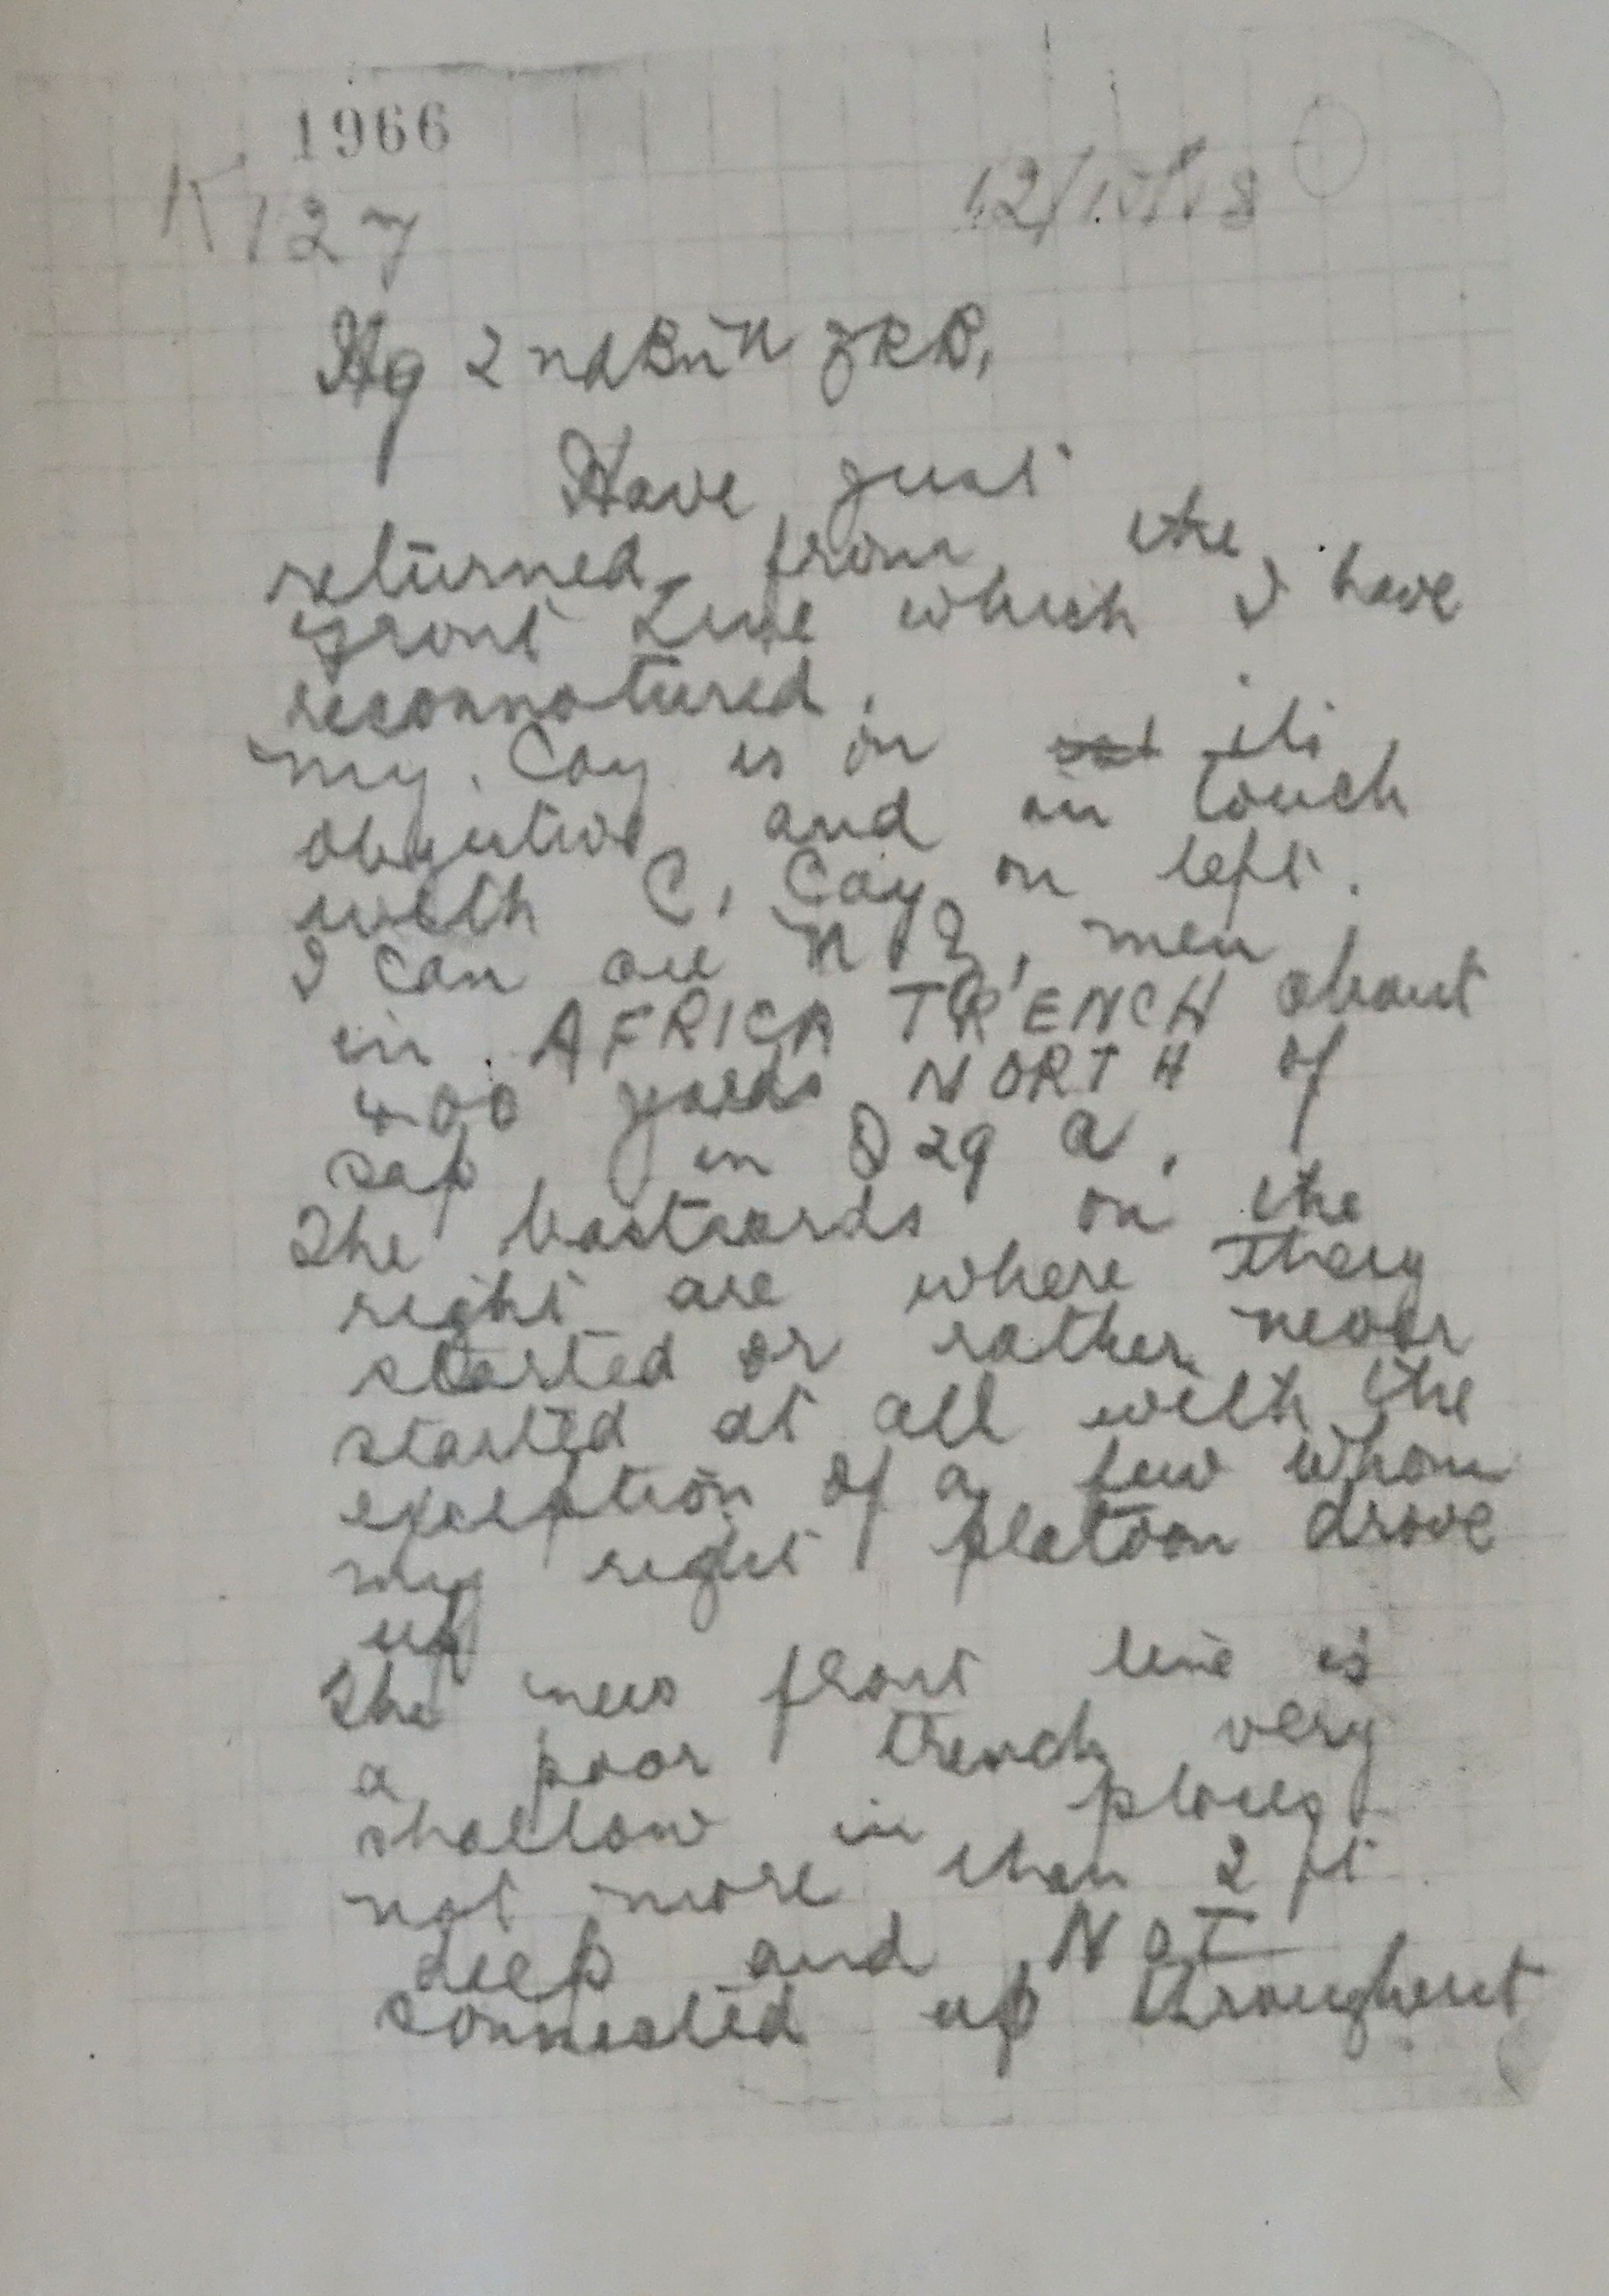 1966
K 127
Hq 2nd Bn N ZRB,
Have just
returned from the
front Line which I have
reconnotured.
my. Coy is on its
objective and in touch
with C, Coy on left.
I can see N.Z, men
in AFRICA TRENCH about
400 yards NORTH of
sap in Q 29 a.
The bastards on the
right are where they
started or rather never
started at all with the
exception of a few whom
my right platoon drove
up
The new front line is
a poor trench very
shallow in places
not more than 2 ft
deep and NOT
connected up throughout